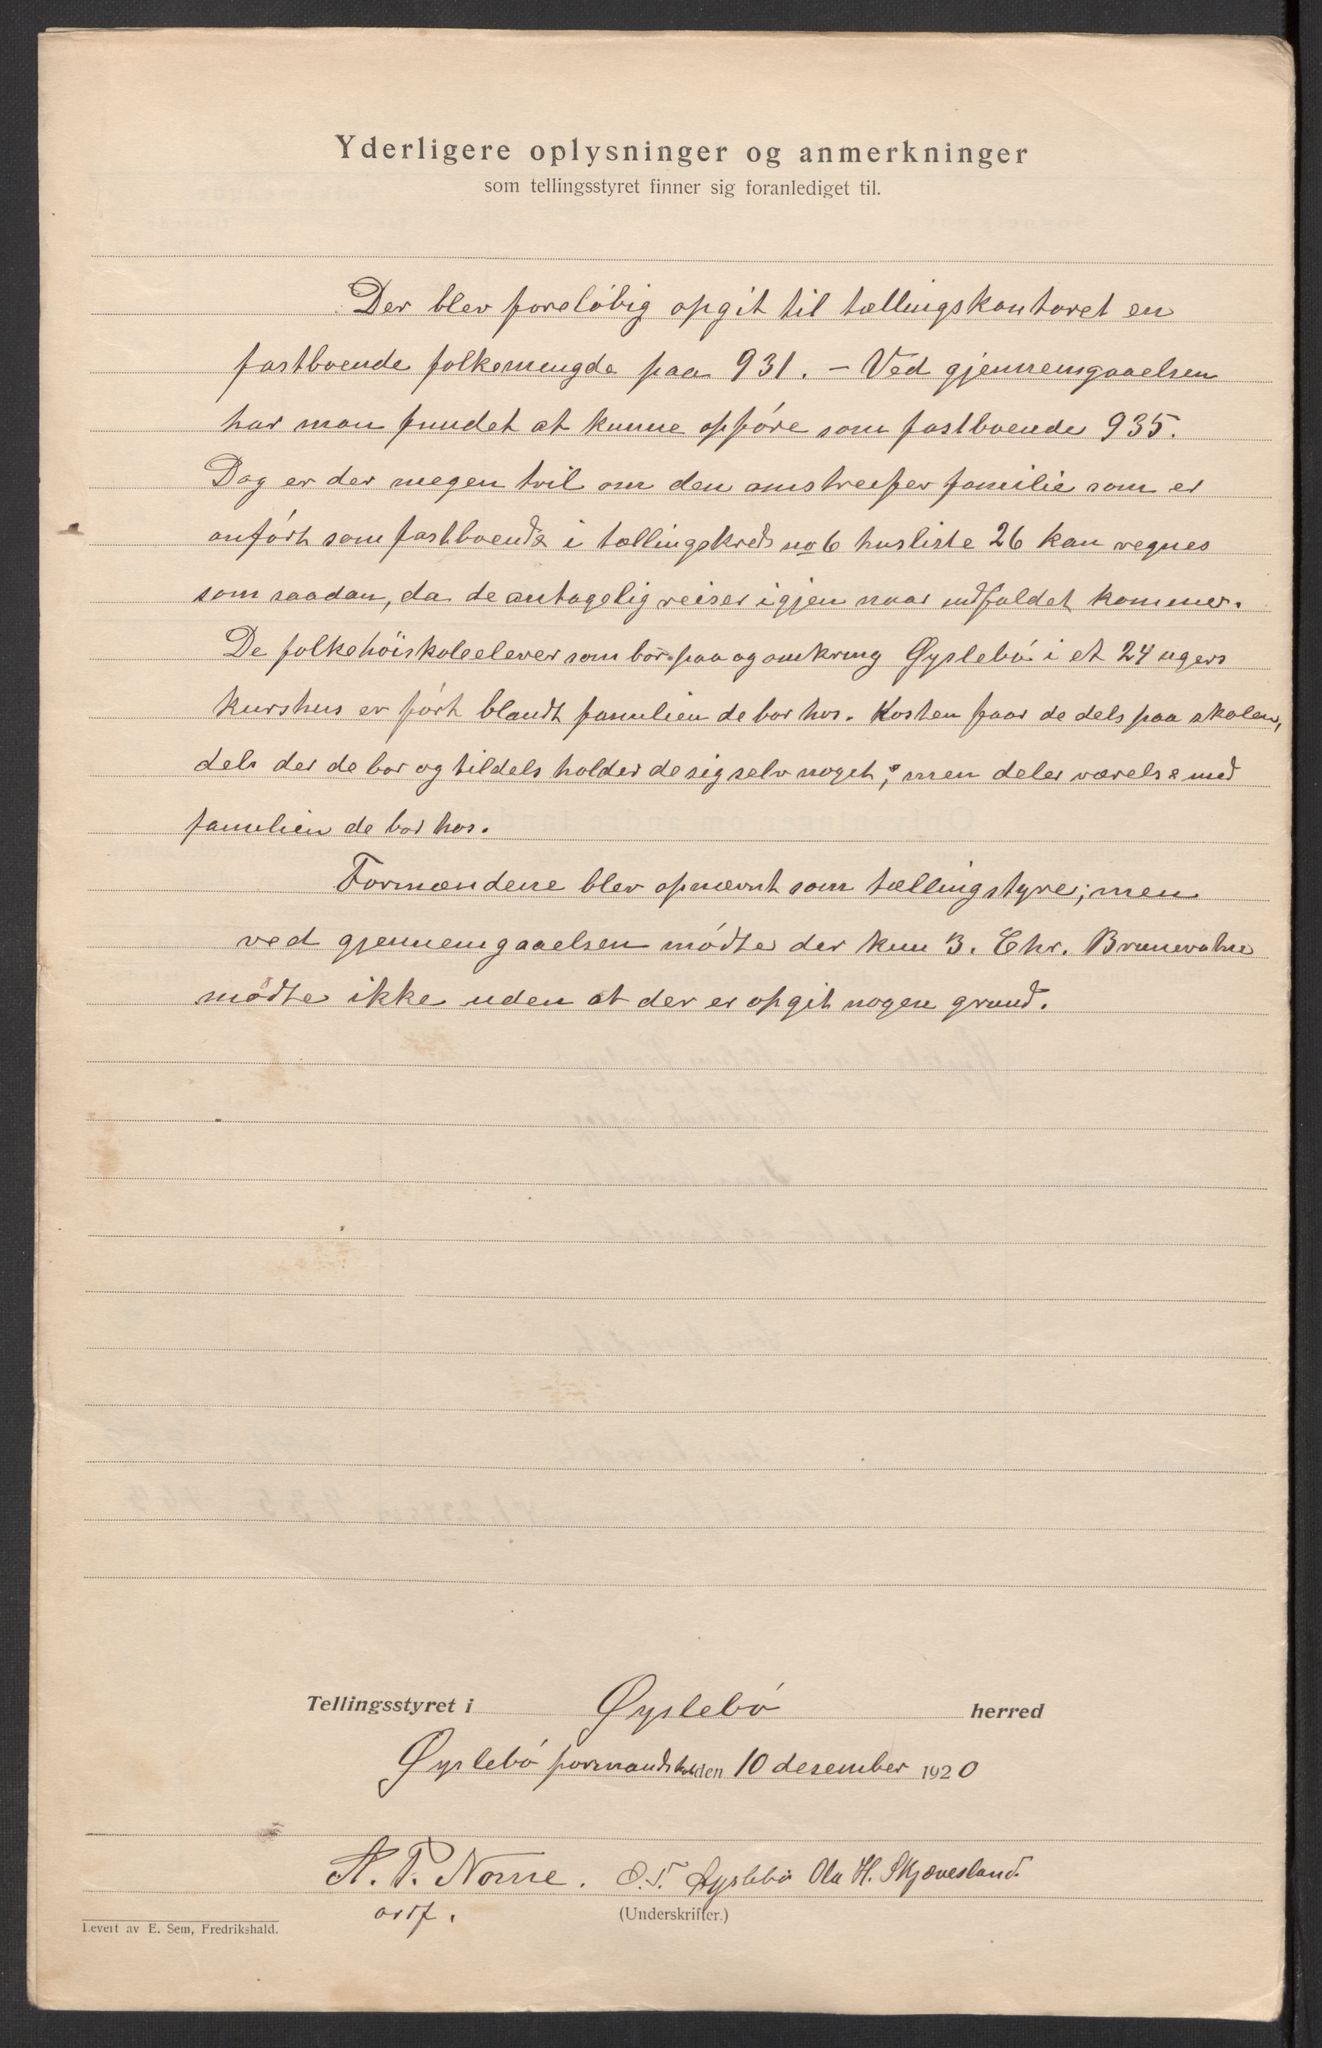 Yderligere oplysninger og anmerkninger
som tellingsstyret finner sig foranlediget til.
Der blev foreløbig opgit til tællingskontoret en
fastboende folkemengde paa 931. — Ved gjennemgaaelsen
har man fundet at kunne opføre som fastboende 935.
Dog er der megen tvil om den omstreifer familie som er
anført som fastboende i tællingskreds no 6 husliste 26 kan regnes
som saadan, da de antagelig reiser igjen naar indfaldet kommer.
De folkehöiskoleelever som bor paa og omkring Øyslebö i et 24 ugers
kurshus er ført blandt familien de bor hos. Kosten faar de dels paa skolen,
dels der de bor og tildels holder de sig selv noget; men deler værelse med
familien de bor hos.
Formændene blev opnævnt som tællingstyre; men
ved gjennemgaaelsen mødte der kun 3. Chr.
mødte ikke uden at der er opgit nogen grund.
Tellingsstyret i Øyslebö herred
Øyslebö formandskab den 10 desember 1920
A. P. Nome. O. T. Øyslebö Ola H. Skjævesland
ordf.
(Underskrifter.)
Levert av E. Sem, Fredrikshald.